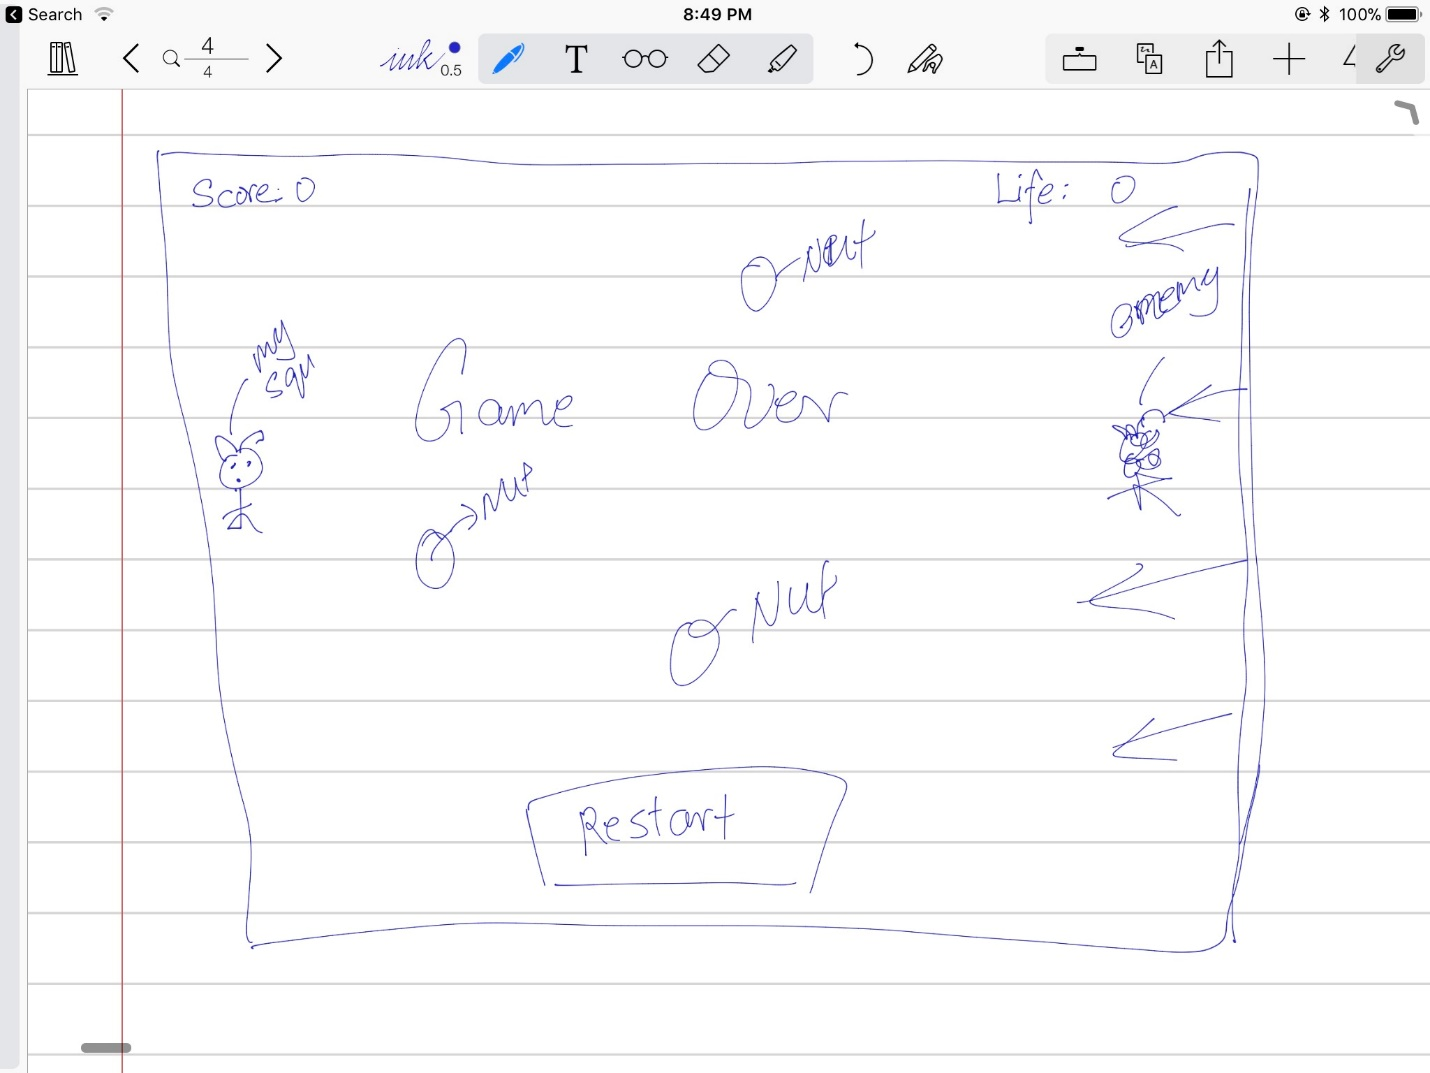 Search
8:49 PM
100%
4
4
ink
0.5
T
A
Score: 0
Life: 0
Nut
enemy
my
squ
Game Over
Nut
Nut
Restart